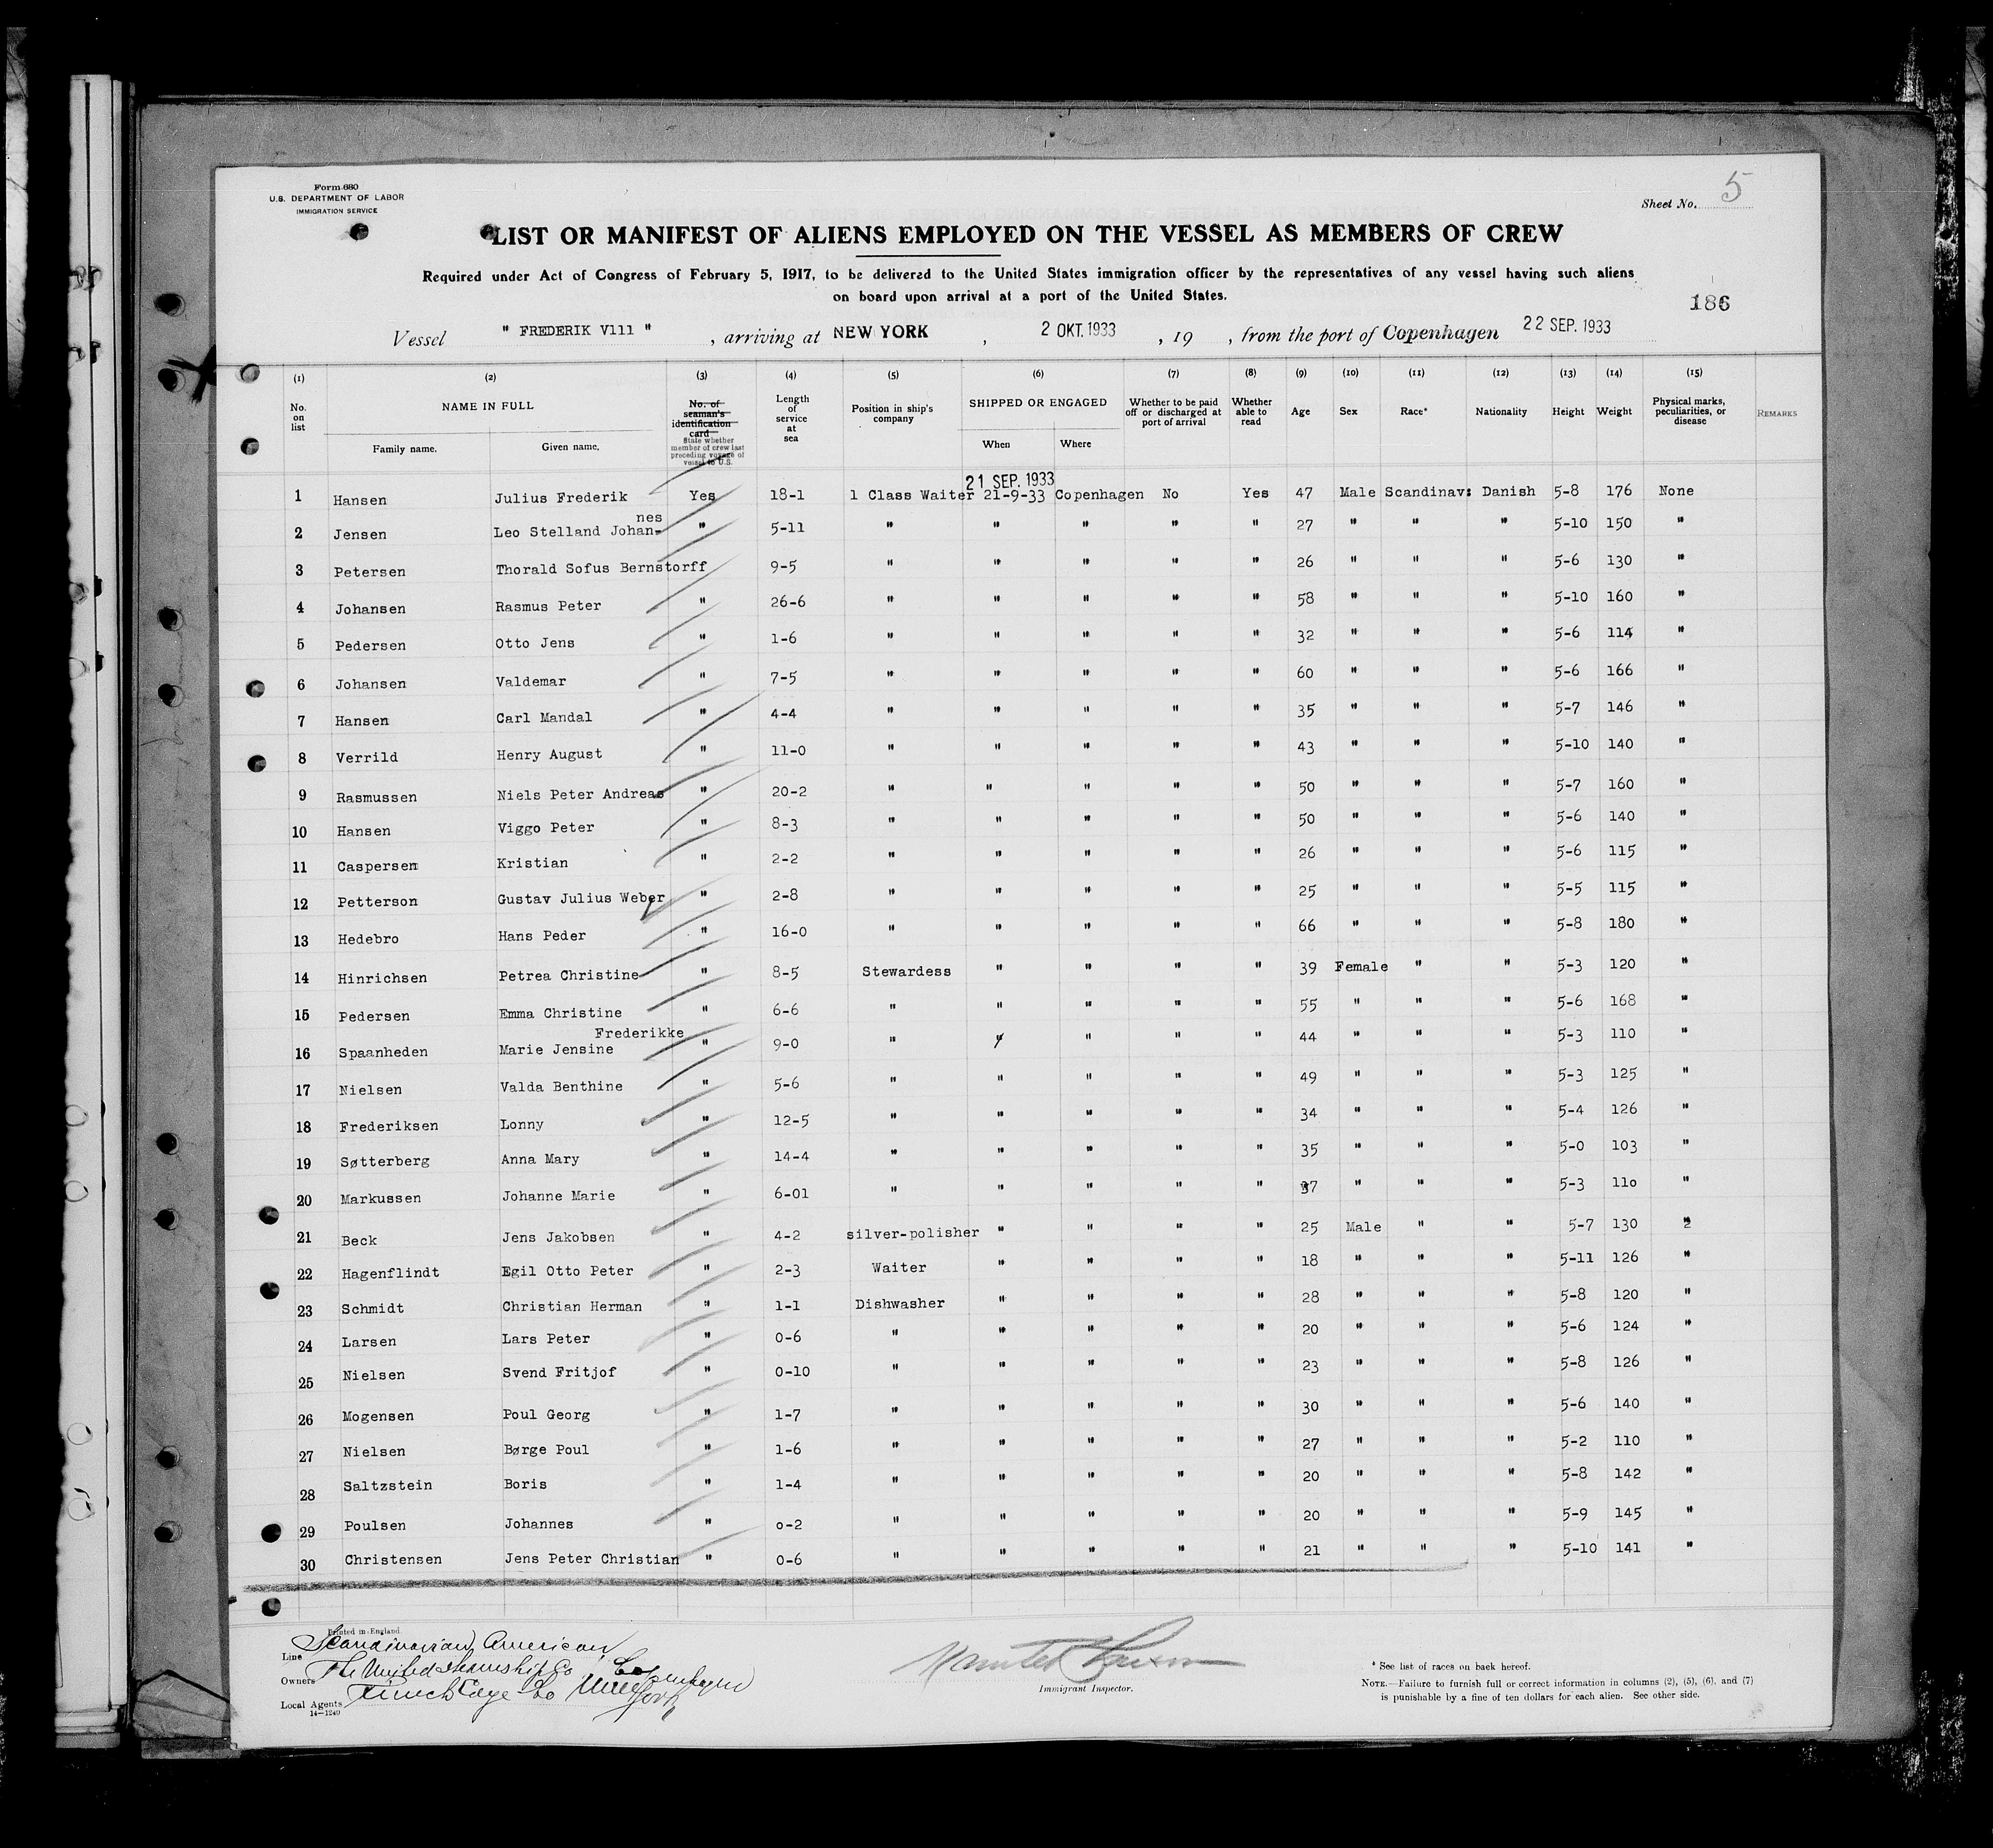 Form 680
U.S. DEPARTMENT OF LABOR
IMMIGRATION SERVICE
Sheet No. 5
LIST OR MANIFEST OF ALIENS EMPLOYED ON THE VESSEL AS MEMBERS OF CREW
Required under Act of Congress of February 5, 1917, to be delivered to the United States immigration officer by the representatives of any vessel having such aliens
on board upon arrival at a port of the United States.
186
Vessel " FREDERIK V111 " , arriving at NEW YORK , 2 OKT. 1933 , 19 , from the port of Copenhagen 22 SEP. 1933
(1) (2) (3) (4) (5) (6) (7) (8) (9) (10) (11) (12) (13) (14) (15)
No. on list NAME IN FULL Family name. Given name. No. of seaman's identification card State whether member of crew last preceding voyage of vessel to U.S. Length of service at sea Position in ship's company SHIPPED OR ENGAGED When Where Whether to be paid off or discharged at port of arrival Whether able to read Age Sex Race* Nationality Height Weight Physical marks, peculiarities, or disease REMARKS
21 SEP. 1933
1 Hansen Julius Frederik Yes 18-1 1 Class Waiter 21-9-33 Copenhagen No Yes 47 Male Scandinav: Danish 5-8 176 None
nes
2 Jensen Leo Stelland Johan- " 5-11 " " " " " 27 " " " 5-10 150 "
3 Petersen Thorald Sofus Bernstorff 9-5 " " " " " 26 " " " 5-6 130 "
4 Johansen Rasmus Peter " 26-6 " " " " " 58 " " " 5-10 160 "
5 Pedersen Otto Jens " 1-6 " " " " " 32 " " " 5-6 114 "
6 Johansen Valdemar " 7-5 " " " " " 60 " " " 5-6 166 "
7 Hansen Carl Mandal " 4-4 " " " " " 35 " " " 5-7 146 "
8 Verrild Henry August " 11-0 " " " " " 43 " " " 5-10 140 "
9 Rasmussen Niels Peter Andreas " 20-2 " " " " " 50 " " " 5-7 160 "
10 Hansen Viggo Peter " 8-3 " " " " " 50 " " " 5-6 140 "
11 Caspersen Kristian " 2-2 " " " " " 26 " " " 5-6 115 "
12 Petterson Gustav Julius Weber " 2-8 " " " " " 25 " " " 5-5 115 "
13 Hedebro Hans Peder " 16-0 " " " " " 66 " " " 5-8 180 "
14 Hinrichsen Petrea Christine " 8-5 Stewardess " " " " 39 Female " " 5-3 120 "
15 Pedersen Emma Christine " 6-6 " " " " " 55 " " " 5-6 168 "
Frederikke
16 Spaanheden Marie Jensine " 9-0 " " " " " 44 " " " 5-3 110 "
17 Nielsen Valda Benthine " 5-6 " " " " " 49 " " " 5-3 125 "
18 Frederiksen Lonny " 12-5 " " " " " 34 " " " 5-4 126 "
19 Søtterberg Anna Mary " 14-4 " " " " " 35 " " " 5-0 103 "
20 Markussen Johanne Marie " 6-01 " " " " " 37 " " " 5-3 11o "
21 Beck Jens Jakobsen " 4-2 silver-polisher " " " " 25 Male " " 5-7 130 "
22 Hagenflindt Egil Otto Peter " 2-3 Waiter " " " " 18 " " " 5-11 126 "
23 Schmidt Christian Herman " 1-1 Dishwasher " " " " 28 " " " 5-8 120 "
24 Larsen Lars Peter " 0-6 " " " " " 20 " " " 5-6 124 "
25 Nielsen Svend Fritjof " 0-10 " " " " " 23 " " " 5-8 126 "
26 Mogensen Poul Georg " 1-7 " " " " " 30 " " " 5-6 140 "
27 Nielsen Børge Poul " 1-6 " " " " " 27 " " " 5-2 110 "
28 Saltzstein Boris " 1-4 " " " " " 20 " " " 5-8 142 "
29 Poulsen Johannes " o-2 " " " " " 20 " " " 5-9 145 "
30 Christensen Jens Peter Christian " 0-6 " " " " " 21 " " " 5-10 141 "
Printed in England.
Line Scandinavian American
Owners The United Steamship Co Copenhagen
Local Agents Funch Edye Co New York
14—1240
Immigrant Inspector.
* See list of races on back hereof.
NOTE.—Failure to furnish full or correct information in columns (2), (5), (6), and (7)
is punishable by a fine of ten dollars for each alien. See other side.